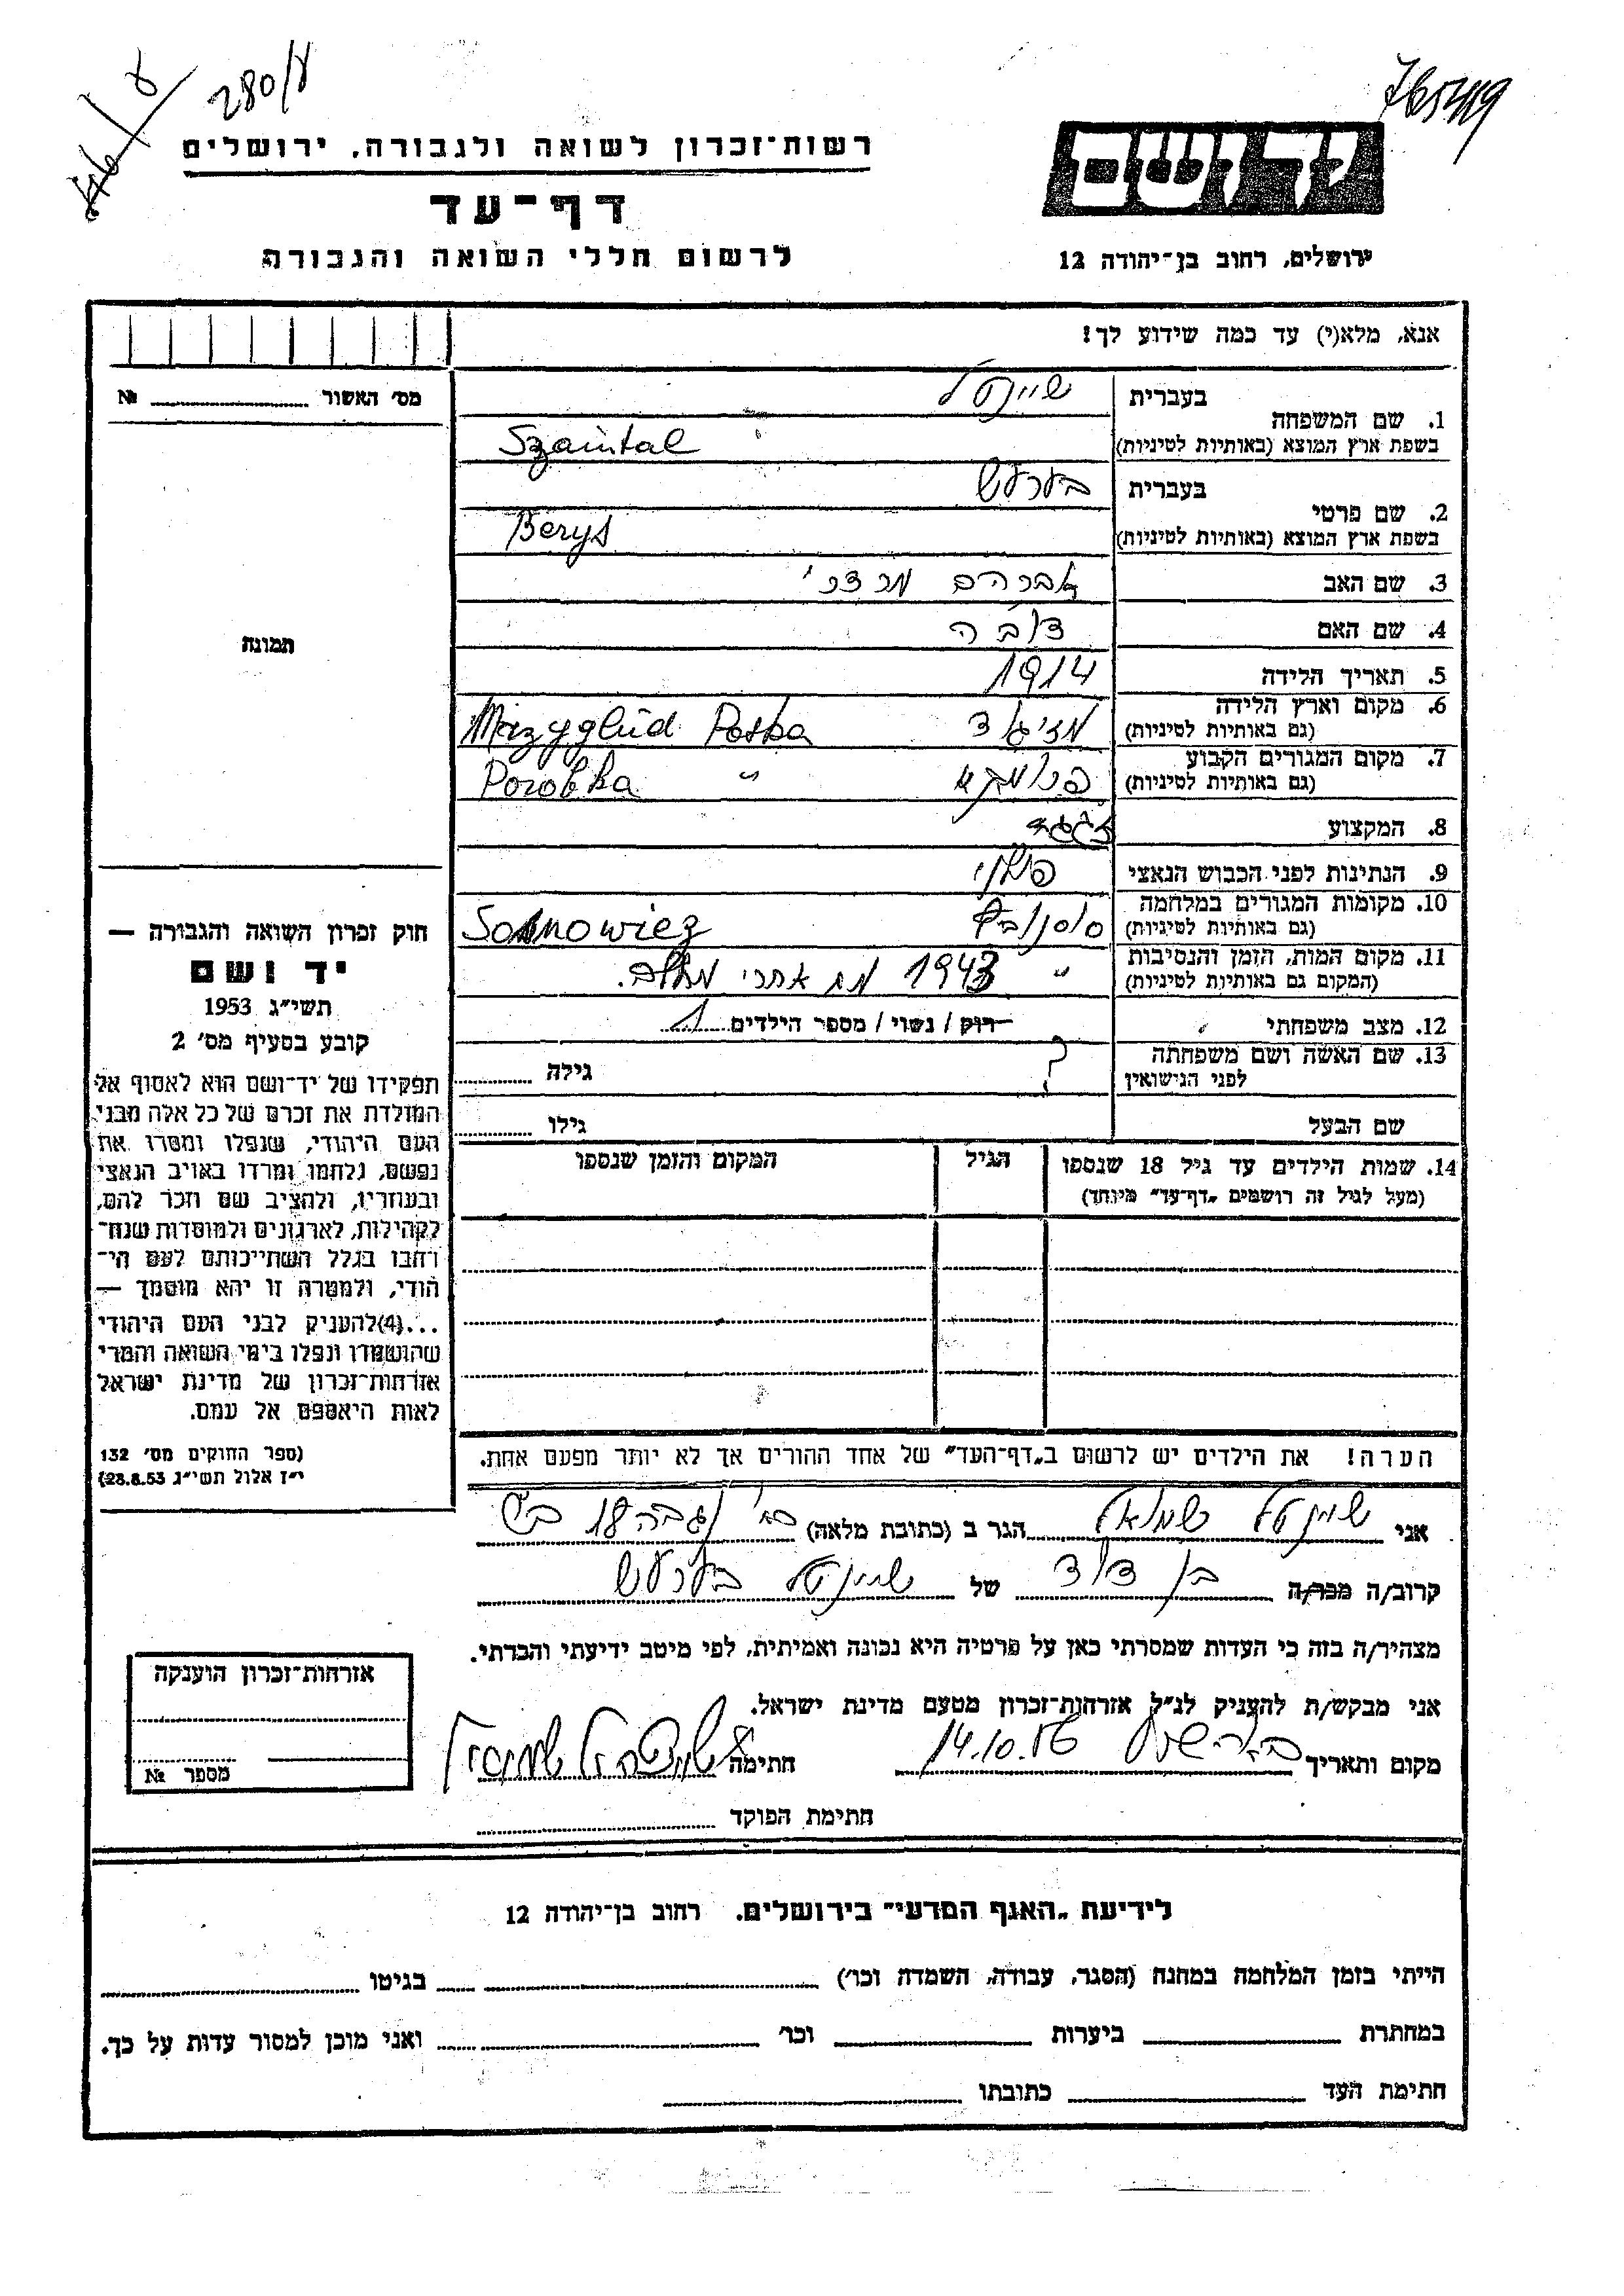 765419
280/ע
46/ע
רשות־זכרון לשואה ולגבורה, ירושלים
דף־עד
לרשום חללי השואה והגבורה
יד ושם
ירושלים, רחוב בן־יהודה 12
אנא, מלא(י) עד כמה שידוע לך!
מס׳ האשור № 
1. שם המשפחה בעברית שיינטל
בשפת ארץ המוצא (באותיות לטיניות) Szaintal
2. שם פרטי בעברית בערעש
בשפת ארץ המוצא (באותיות לטיניות) Berys
3. שם האב אברהם מרדכי
4. שם האם דובה
5. תאריך הלידה 1914
6. מקום וארץ הלידה
(גם באותיות לטיניות) Mrzyglud Polska
7. מקום המגורים הקבוע
(גם באותיות לטיניות) Porobka "
8. המקצוע
9. הנתינות לפני הכבוש הנאצי פולני
10. מקומות המגורים במלחמה
(גם באותיות לטיניות) סוסנוביץ Sosnowiez
11. מקום המות, הזמן והנסיבות
(המקום גם באותיות לטיניות) " 1943 מת אחרי
12. מצב משפחתי רוק / נשוי / מספר הילדים 1
13. שם האשה ושם משפחתה
לפני הנישואין ? גילה
שם הבעל גילו
14. שמות הילדים עד גיל 18 שנספו
(מעל לגיל זה רושמים „דף־עד״ מיוחד)
הגיל
המקום והזמן שנספו
תמונה
חוק זכרון השואה והגבורה —
יד ושם
תשי״ג 1953
קובע בסעיף מס׳ 2
תפקידו של יד־ושם הוא לאסוף אל
המולדת את זכרם של כל אלה מבני
העם היהודי, שנפלו ומסרו את
נפשם, נלחמו ומרדו באויב הנאצי
ובעוזריו, ולהציב שם וזכר להם,
לקהילות, לארגונים ולמוסדות שנח־
רבו בגלל השתייכותם לעם הי־
הודי, ולמטרה זו יהא מוסמך —
...(4)להעניק לבני העם היהודי
שהושמדו ונפלו בימי השואה והמרי
אזרחות־זכרון של מדינת ישראל
לאות היאספם אל עמם.
(ספר החוקים מס׳ 132
י״ז אלול תשי״ג 28.8.53)
הערה! את הילדים יש לרשום ב„דף־העד״ של אחד ההורים אך לא יותר מפעם אחת.
אני שיינטל שמואל הגר ב (כתובת מלאה) 18 ב״ש
קרוב/ה מכר/ה בן דוד של שיינטל בערעש
מצהיר/ה בזה כי העדות שמסרתי כאן על פרטיה היא נכונה ואמיתית, לפי מיטב ידיעתי והכרתי.
אני מבקש/ת להעניק לנ״ל אזרחות־זכרון מטעם מדינת ישראל.
מקום ותאריך באר שבע 14.10.56 חתימה שיינטל שמואל
חתימת הפוקד
אזרחות־זכרון הוענקה
מספר №
לידיעת „האגף המדעי״ בירושלים. רחוב בן־יהודה 12
הייתי בזמן המלחמה במחנה (הסגר, עבודה, השמדה וכו׳) בגיטו
במחתרת ביערות וכו׳ ואני מוכן למסור עדות על כך.
חתימת העד כתובתו